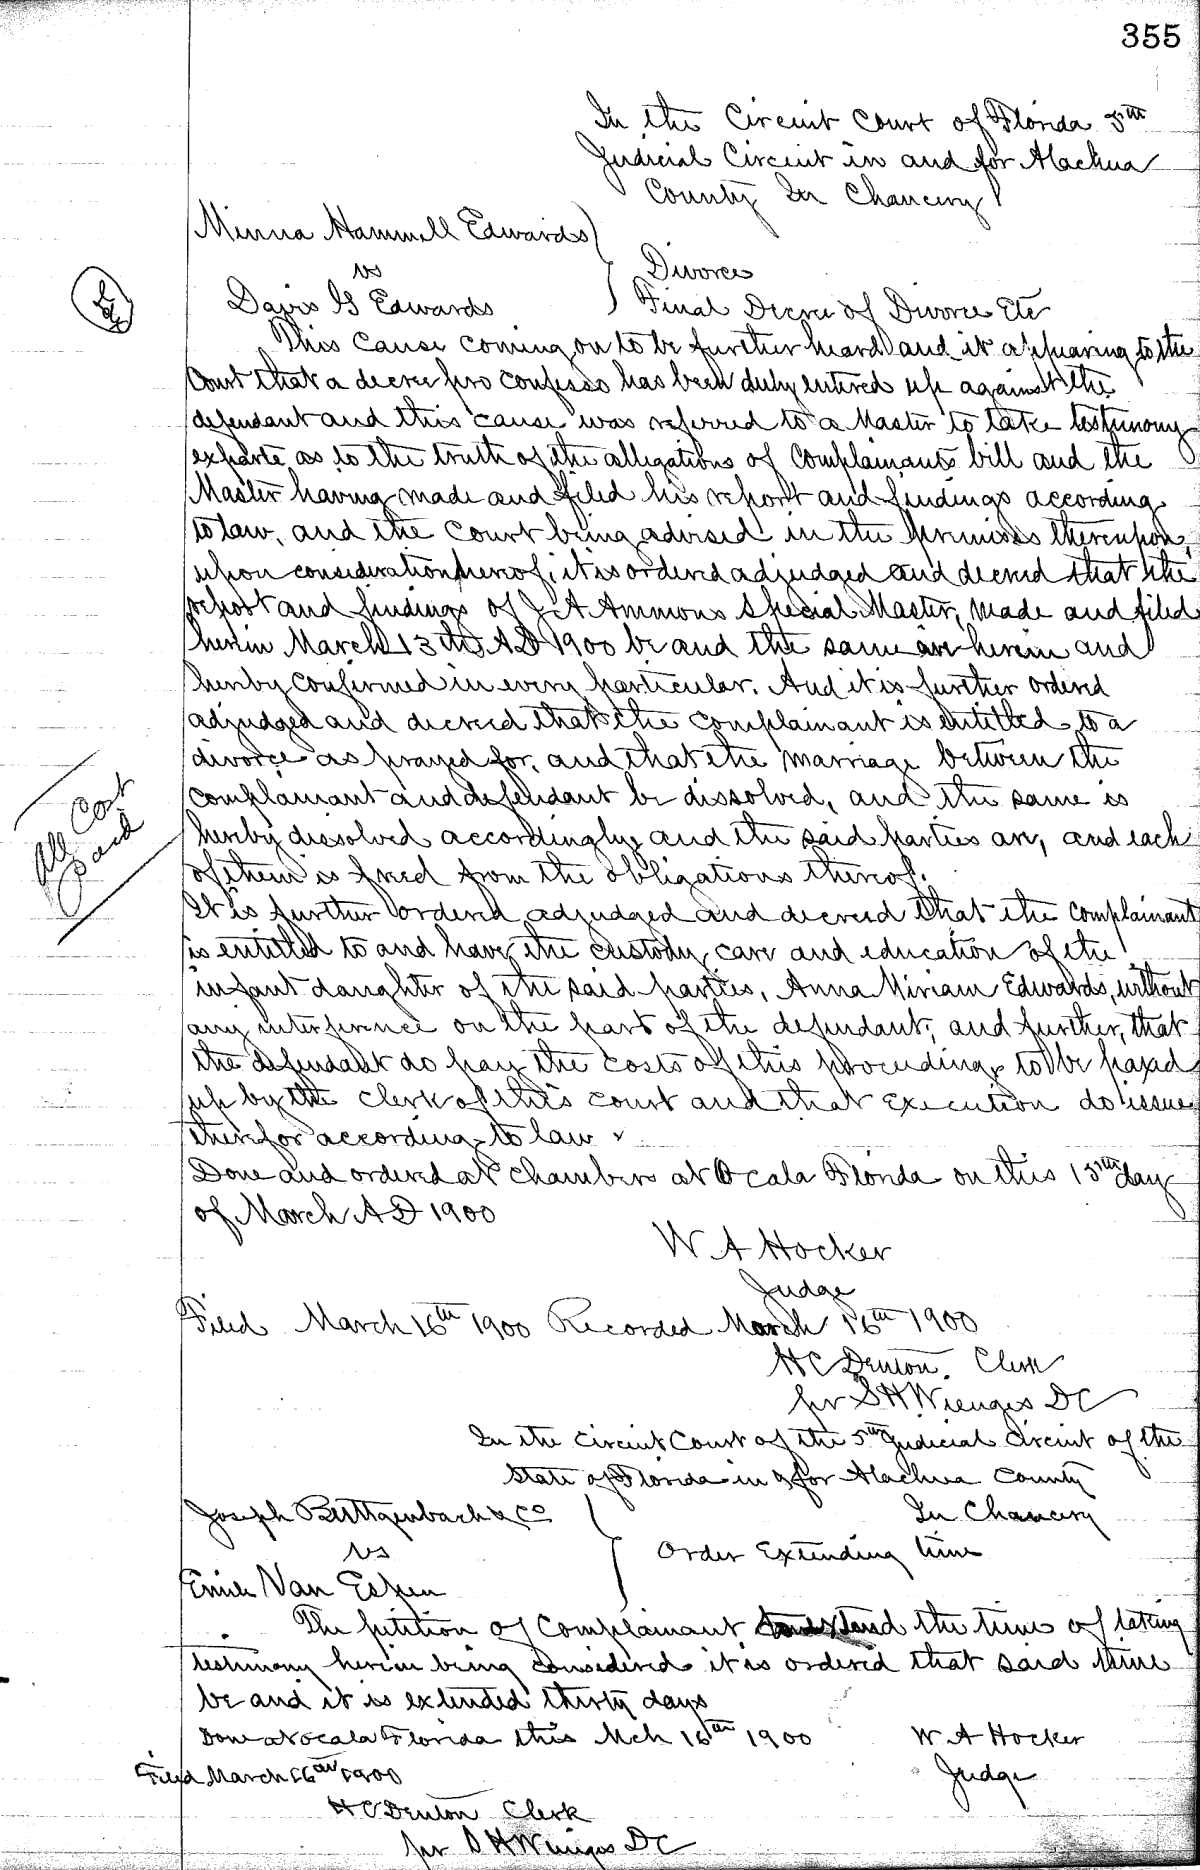 355
In the Circuit Court of Florida 5th
Judicial Circuit in and for Alachua
County In Chancery
Minna Hammell Edwards
vs
Divorce
Davis G Edwards
Final Decree of Divorce Etc
This Cause coming on to be further heard and it appearing to the
Court that a decree pro confesso has been duly entered up against the
defendant and this cause was referred to a Master to take testimony
exparte as to the truth of the allegations of Complainants bill and the
Master having made and filed his report and findings according
to law, and the Court being advised in the premises thereupon,
upon consideration hereof, it is ordered adjudged and decreed that the
report and findings of J. A Ammons Special Master, made and filed
herein March 13th A.D 1900 be and the same are herein and
hereby confirmed in every particular. And it is further ordered
adjudged and decreed that the complainant is entitled to a
divorce as prayed for, and that the marriage between the
complainant and defendant be dissolved, and the same is
hereby dissolved accordingly, and the said parties are, and each
of them is freed from the obligations thereof.
All Cost
Paid
It is further ordered, adjudged and decreed that the complainant
is entitled to and have, the custody, care and education of the
infant daughter of the said parties, Anna Miriam Edwards, without
any interference on the part of the defendant; and further, that
the defendant do pay the costs of this proceeding to be taxed
up by the Clerk of this court and that execution do issue
therefor according to law
Done and ordered at Chambers at Ocala Florida on this 15th day
of March A D 1900
W A Hocker
Judge
Filed March 16th 1900 Recorded March 16th 1900
H C Denton, Clerk
per S H Wienges D C
In the Circuit Court of the 5th Judicial Circuit of the
State of Florida in & for Alachua County
Joseph Buttgenbach & Co
In Chancery
vs
Order Extending time
Emile Van Espen
The petition of Complainant extend the time of taking
testimony herein being considered it is ordered that said time
be and it is extended thirty days
Done at Ocala Florida this Mch 16th 1900
W A Hocker
Filed March 16th 1900
Judge
H C Denton Clerk
per S H Wienges D C